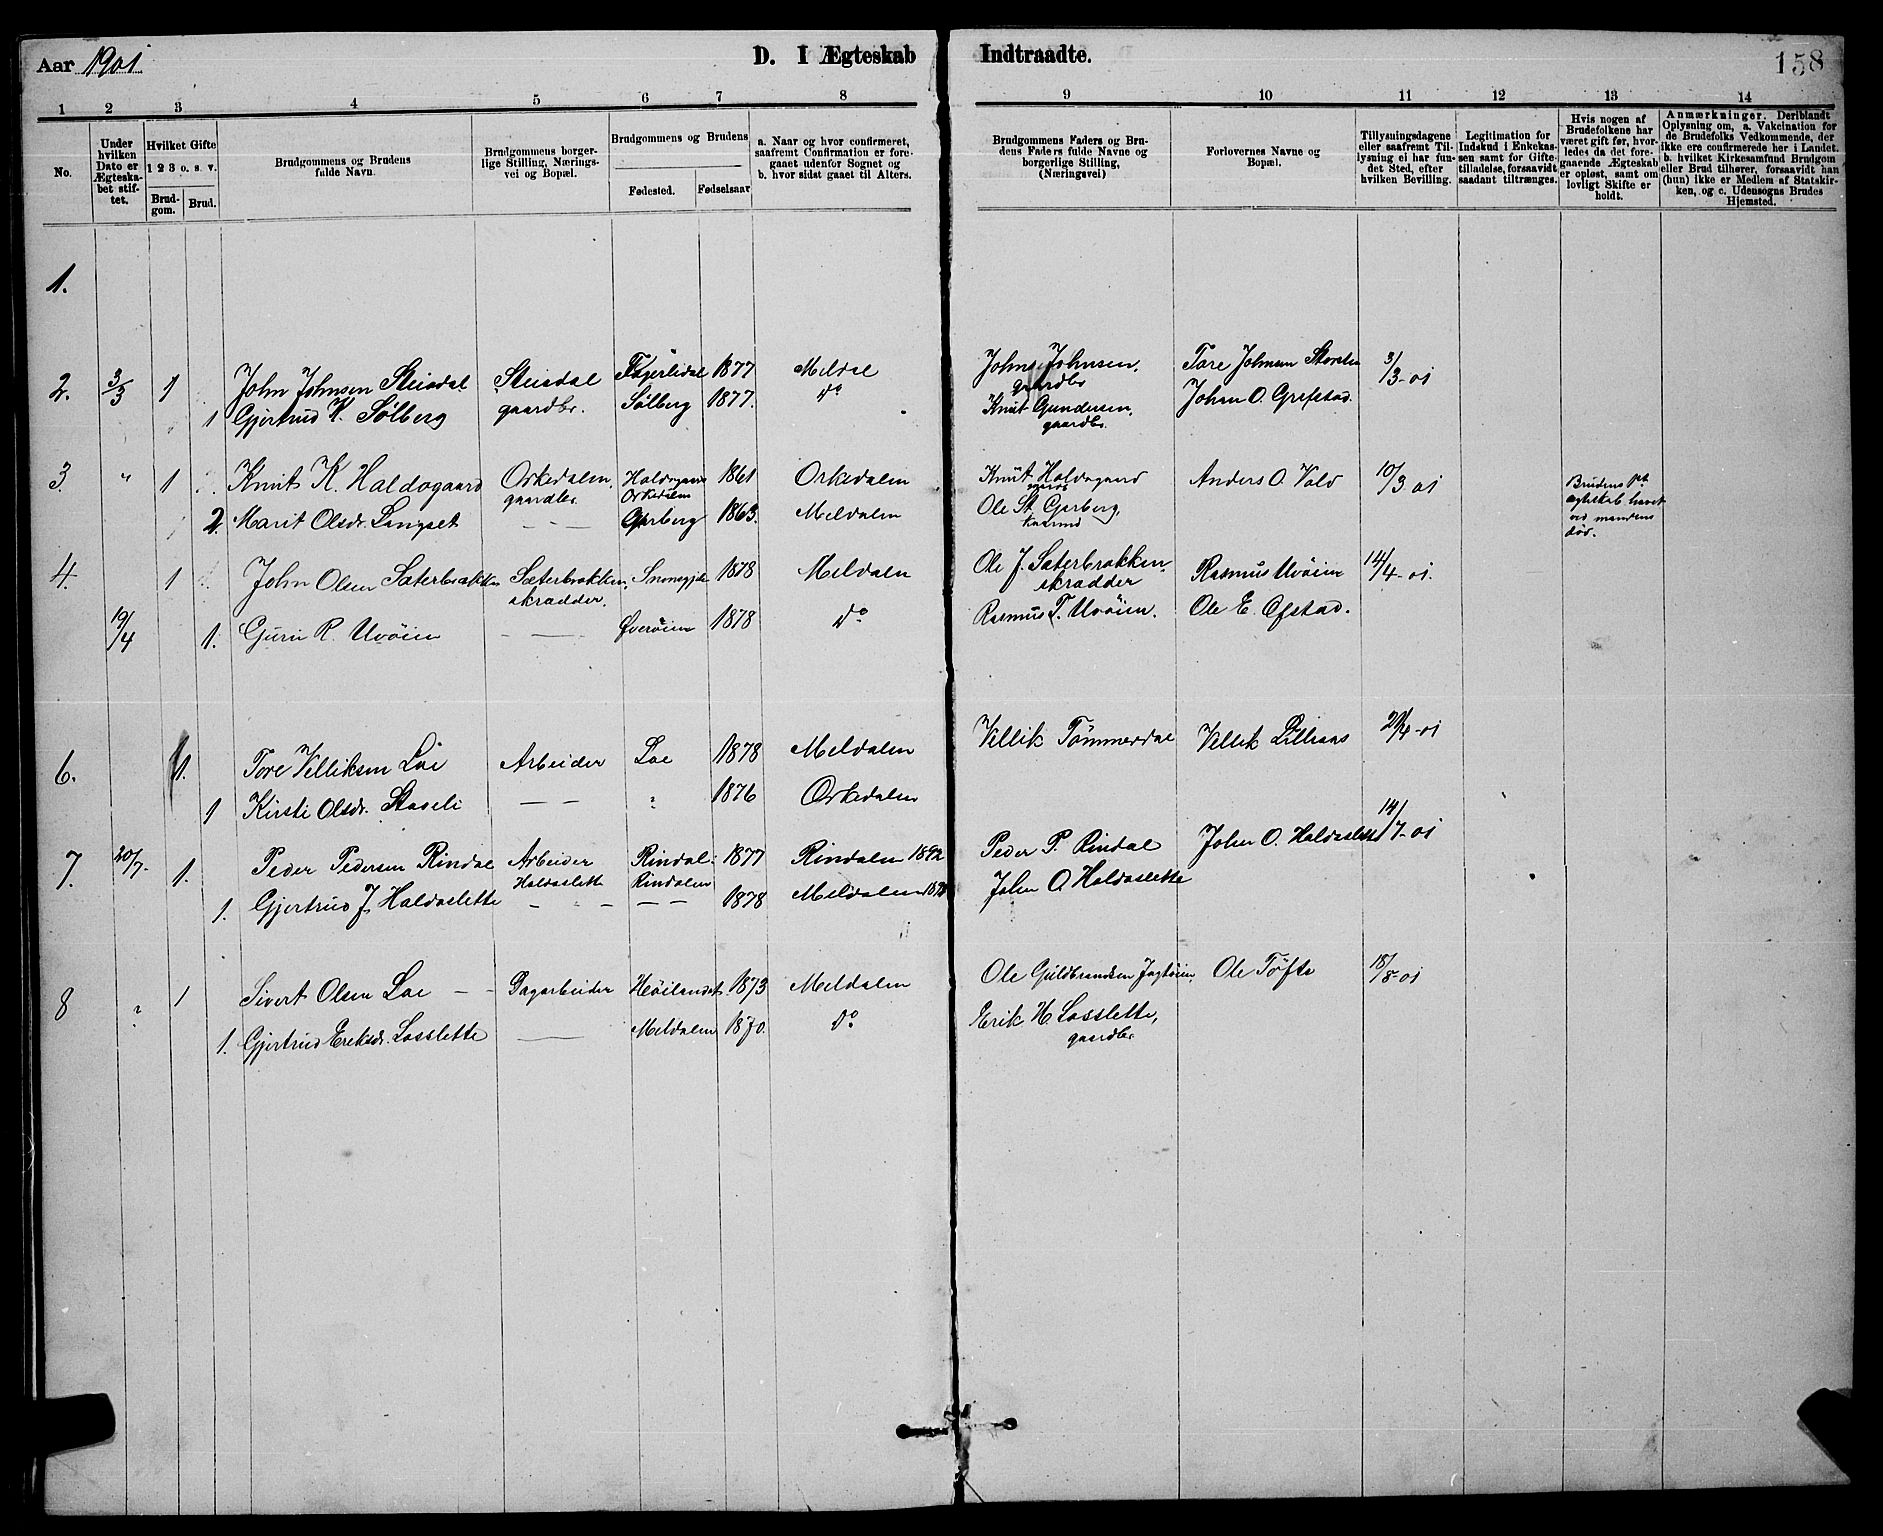 Aar 1901
D. I Ægteskab Indtraadte.
158
1 2 3 4 5 6 7 8 9 10 11 12 13 14
No.
Under hvilken Dato er Ægteskabet stiftet.
Hvilket Gifte
1 2 3 o. s. v.
Brudgom.
Brud.
Brudgommens og Brudens fulde Navn.
Brudgommens borgerlige Stilling, Næringsvei og Bopæl.
Brudgommens og Brudens
Fødested.
Fødselsaar
a. Naar og hvor confirmeret, saafremt Confirmation er foregaaet udenfor Sognet og b. hvor sidst gaaet til Alters.
Brudgommens Faders og Brudens Faders fulde Navne og borgerlige Stilling, (Næringsvei)
Forlovernes Navne og Bopæl.
Tillysningsdagene eller saafremt Tillysning ei har fundet Sted, efter hvilken Bevilling.
Legitimation for Indskud i Enkekassen samt for Giftetilladelse, forsaavidt saadant tiltrænges.
Hvis nogen af Brudefolkene har været gift før, hvorledes da det foregaaende Ægteskab er opløst, samt om lovligt Skifte er holdt.
Anmærkninger. Deriblandt Oplysning om, a. Vakcination for de Brudefolks Vedkommende, der ikke ere confirmerede her i Landet. b. hvilket Kirkesamfund Brudgom eller Brud tilhører, forsaavidt han (hun) ikke er Medlem af Statskirken, og c. Udensogns Brudes Hjemsted.
1.
2. 3/3 1 John Johnsen Steisdal Steisdal 1877 Meldal Johns Johnsen, gaardbr Tore Johnsen 3/3-01
1 Gjertrud K. Sølberg gaardbr. Sølberg 1877. Do Knut Gundersen, gaardbr. Johan O. Grefstad.
3. " 1 Knut K. Haldogaard Orkedalen, gaardbr. Orkedalen 1861 Orkedalen Knut Haldogaard Anders O. Vold 10/3 01 Brudens 1ste ægteskab hævet ved mandens død.
2. Marit Olsdr. Langset — — — Garberg 1863. Meldalen Ole St. Garberg,
4. 1 John Olsen Sæterbrokken Sæterbrokken, skrædder. 1878 Meldalen Ole J. Sæterbrokken skrædder Rasmus Uvöien 14/4-01.
19/4 1. Guri R. Uvöien — — 1878 Do Rasmus T. Uvöien. Ole E. Efstad.
6. 1. Tore Velliksen Loe Arbeider Loe 1878 Meldalen Vellik Tömmerdal Vellik 21/4-01
1 Kirsti Olsdr. Staveli — — " 1876 Orkedalen
7. 20/7. 1. Peder Pedersen Rindal Arbeider Haldoslette Rindal Rindalen 1877 Rindalen 1892 Peder P. Rindal John O. Haldoslette 14/7-01
1. Gjertrud J. Haldoslette — " — — — 1878 Meldalen John O. Haldoslette
8 " 1 Sivert Olsen Loe — — Dagarbeider Höilandet 1873 Meldalen Ole Guldbrandsen Ole Töfte 18/8-01
1. Gjertrud Eriksdr. Losslette — Meldalen 1870. Do Erik H. Losslette, gaardbr